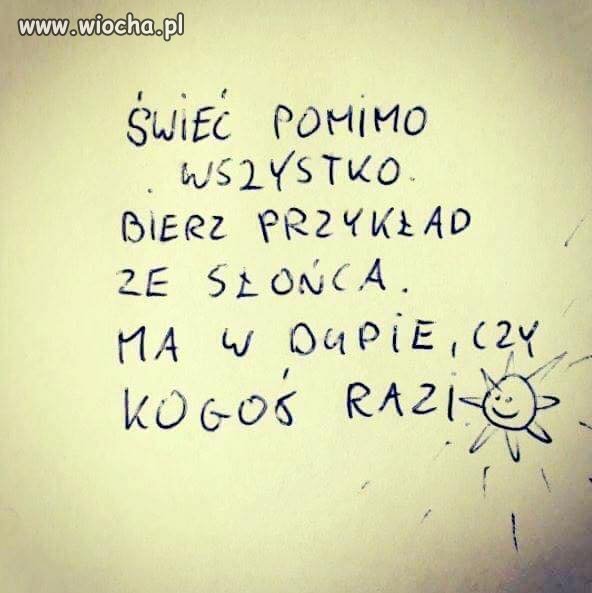 www.wiocha.pl
ŚWIEĆ POMIMO
WSZYSTKO.
BIERZ PRZYKŁAD
ZE SŁOŃCA.
MA W DUPIE, CZY
KOGOŚ RAZI